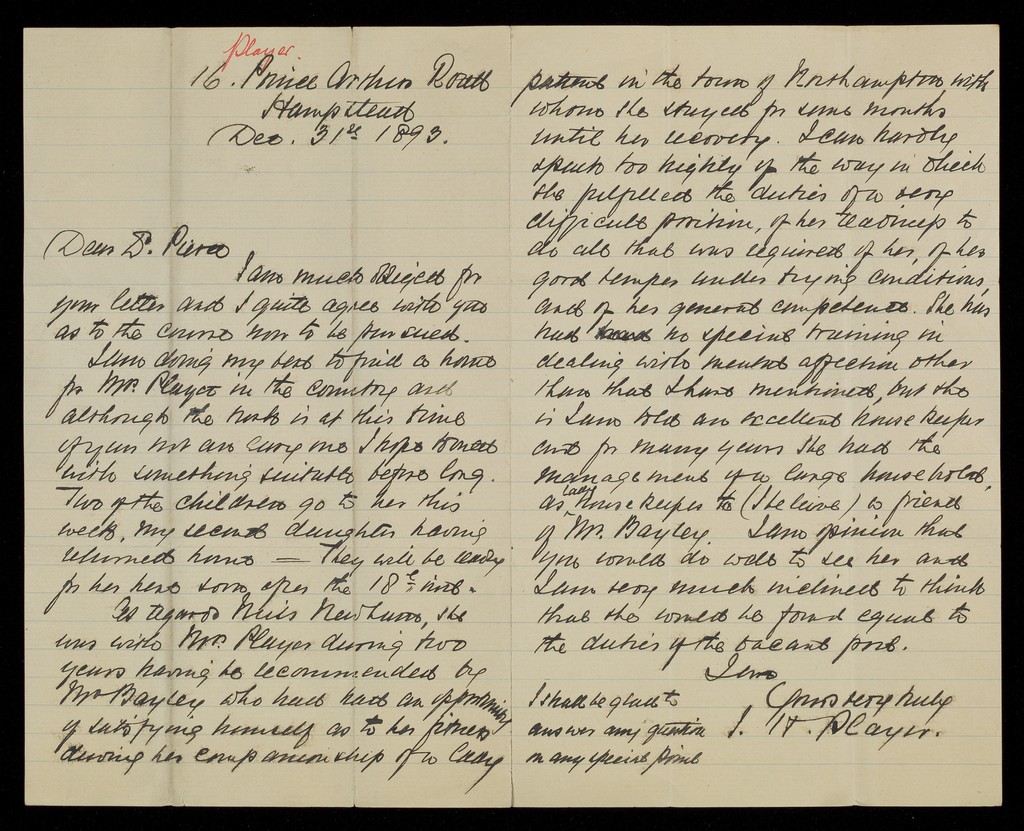 Player.
16. Prince Arthur Road
Hampstead
Dec. 31st 1893.
Dear Dr. Pierce
I am much obliged for
your letter and I quite agree with you
as to the course now to be pursued.
I am doing my best to find a home
for Mrs. Player in the country and
although the task is at this time
of year not an easy one I hope to meet
with something suitable before long.
Two of the children go to her this
week, my second daughter having
returned home — They will be ready
for her here soon after the 18th inst.
As regards Miss Newham, she
was with Mrs. Player during two
years having be recommended by
Mr Bayley who had had an opportunity
of satisfying himself as to her fitness
during her companionship of a lady
patient in the town of Northampton with
whom she stayed for some months
until her recovery. I can hardly
speak too highly of the way in which
she fulfilled the duties of a very
difficult position, of her readiness to
do all that was required of her, of her
good temper under trying conditions
and of her general competence. She has
had no special training in
dealing with mental affection other
than that I have mentioned, but she
is I am told an excellent house keeper
and for many years she had the
management of a large household,
as lady housekeeper to (I believe) a friend
of Mr. Bayley. I am opinion that
you would do well to see her and
I am very much inclined to think
that she would be found equal to
the duties of the vacant post.
I am
Yours very truly
J. H. Player.
I shall be glad to
answer any question
on any special point